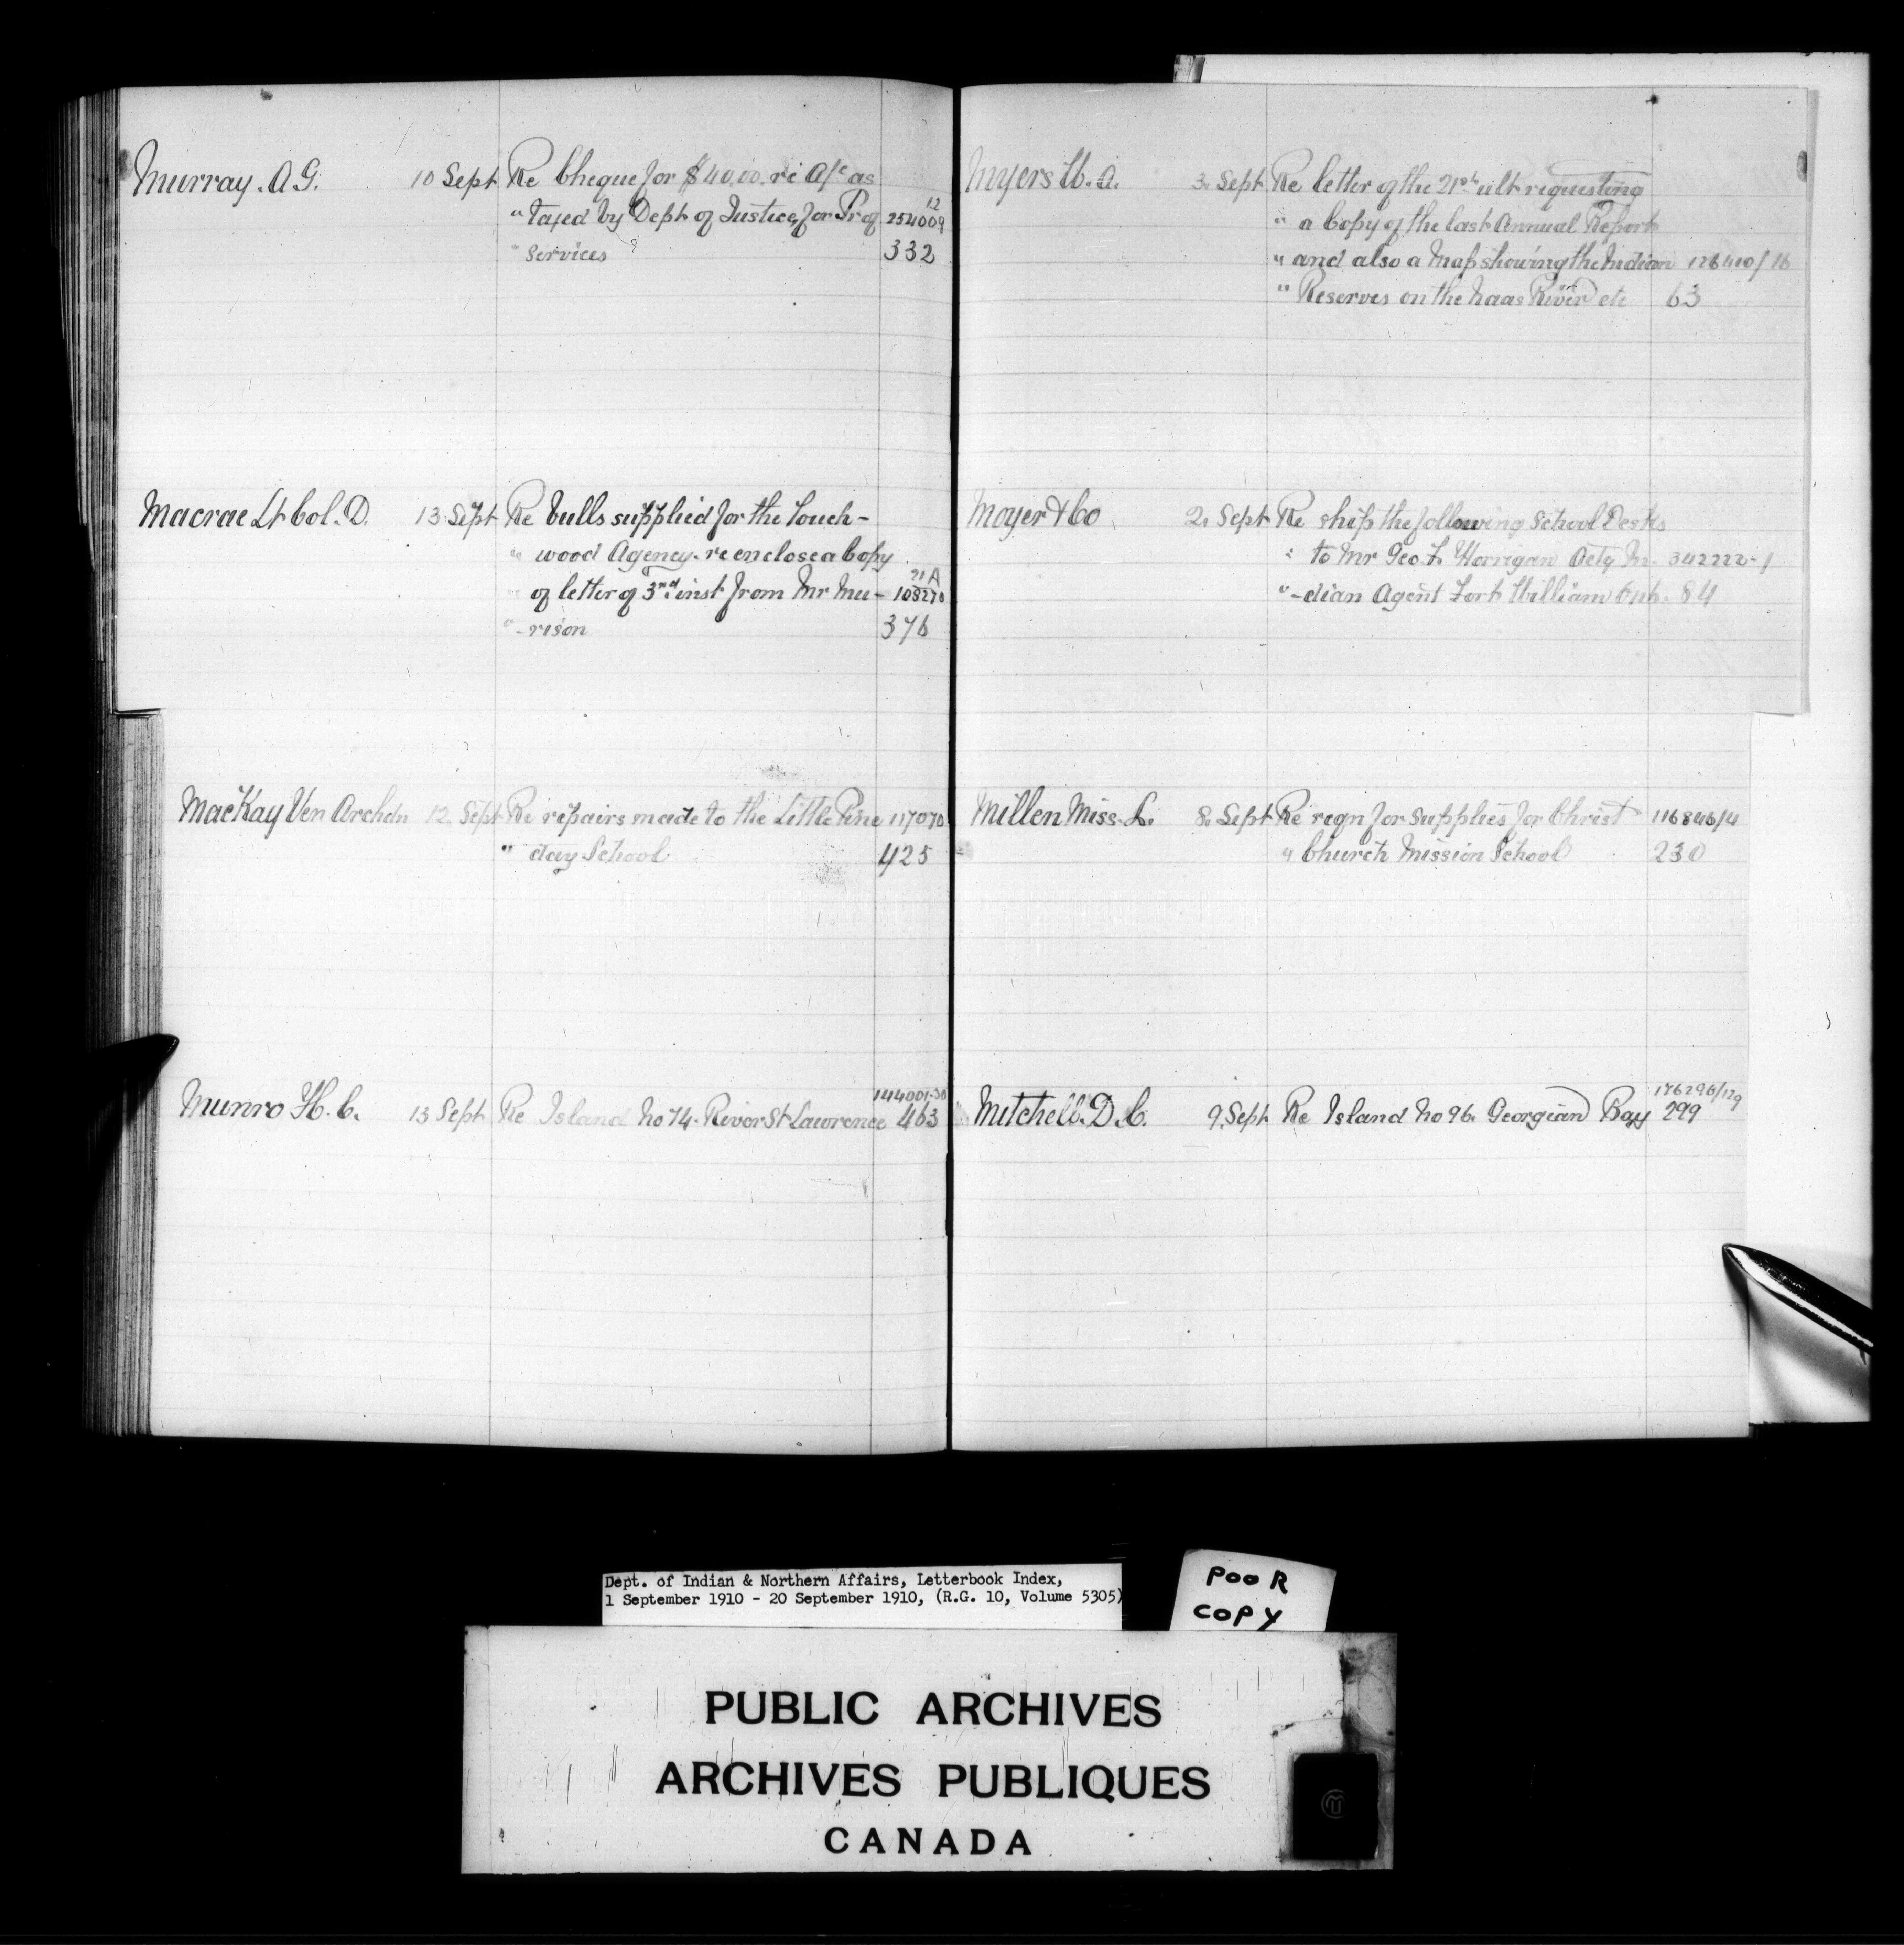 Murray. A G. 10 Sept Re Cheque for $40.00. re A/c as
" taxed by Dept of Justice, for Prof 254009 12
" services 332
Macrae Lt Col. D. 13 Sept Re bulls supplied for the Touch-
" wood Agency. re enclose a copy
" of letter of 3rd inst from Mr Mu- 108270 21A
" -rison 376
MacKay Ven Archdn 12. Sept Re repairs made to the Little Pine 117070
" day School 425
Munro H. C. 13 Sept Re Island No 74. River St Lawrence 144001-30 463
Myers W. A. 3. Sept Re letter of the 21st ult requesting
" a Copy of the last Annual Report
" and also a Map showing the Indian 126410/16
" Reserves on the Naas River etc 63
Moyer & Co 2. Sept Re ship the following School Desks
" to Mr Geo. F. Horrigan Actg In- 342222-1
" -dian Agent Fort William Ont. 84
Millen Miss. L. 8. Sept Re reqn for supplies for Christ 116846/4
" Church Mission School 230
Mitchell. D. C. 9. Sept Re Island No 96. Georgian Bay 176296/129 299
Dept. of Indian & Northern Affairs, Letterbook Index,
1 September 1910 - 20 September 1910, (R.G. 10, Volume 5305)
POOR
COPY
PUBLIC ARCHIVES
ARCHIVES PUBLIQUES
CANADA